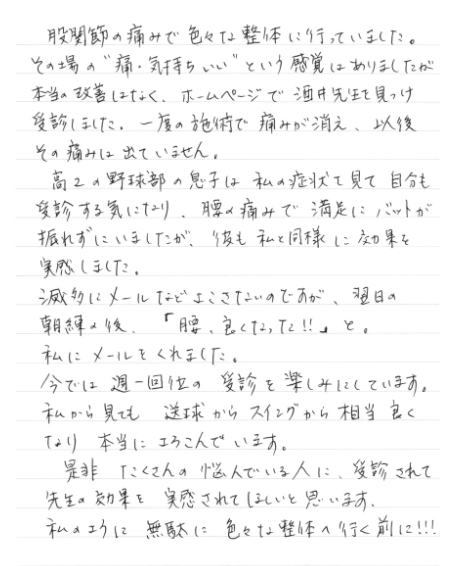 股関節の痛みで色々な整体に行っていました。
その場の"痛・気持ちいい"という感覚はありましたが
本当の改善はなく、ホームページで酒井先生を見つけ
受診しました。一度の施術で痛みが消え、以後
その痛みは出ていません。
高2の野球部の息子は私の症状を見て自分も
受診する気になり、腰の痛みで満足にバットが
振れずにいましたが、彼も私と同様に効果を
実感しました。
滅多にメールなどよこさないのですが、翌日の
朝練の後、「腰、良くなった!!」と。
私にメールをくれました。
今では週一回位の受診を楽しみにしています。
私から見ても送球からスイングから相当良く
なり本当によろこんでいます。
是非たくさんの悩んでいる人に、受診されて
先生の効果を実感されてほしいと思います。
私のように無駄に色々な整体へ行く前に!!!